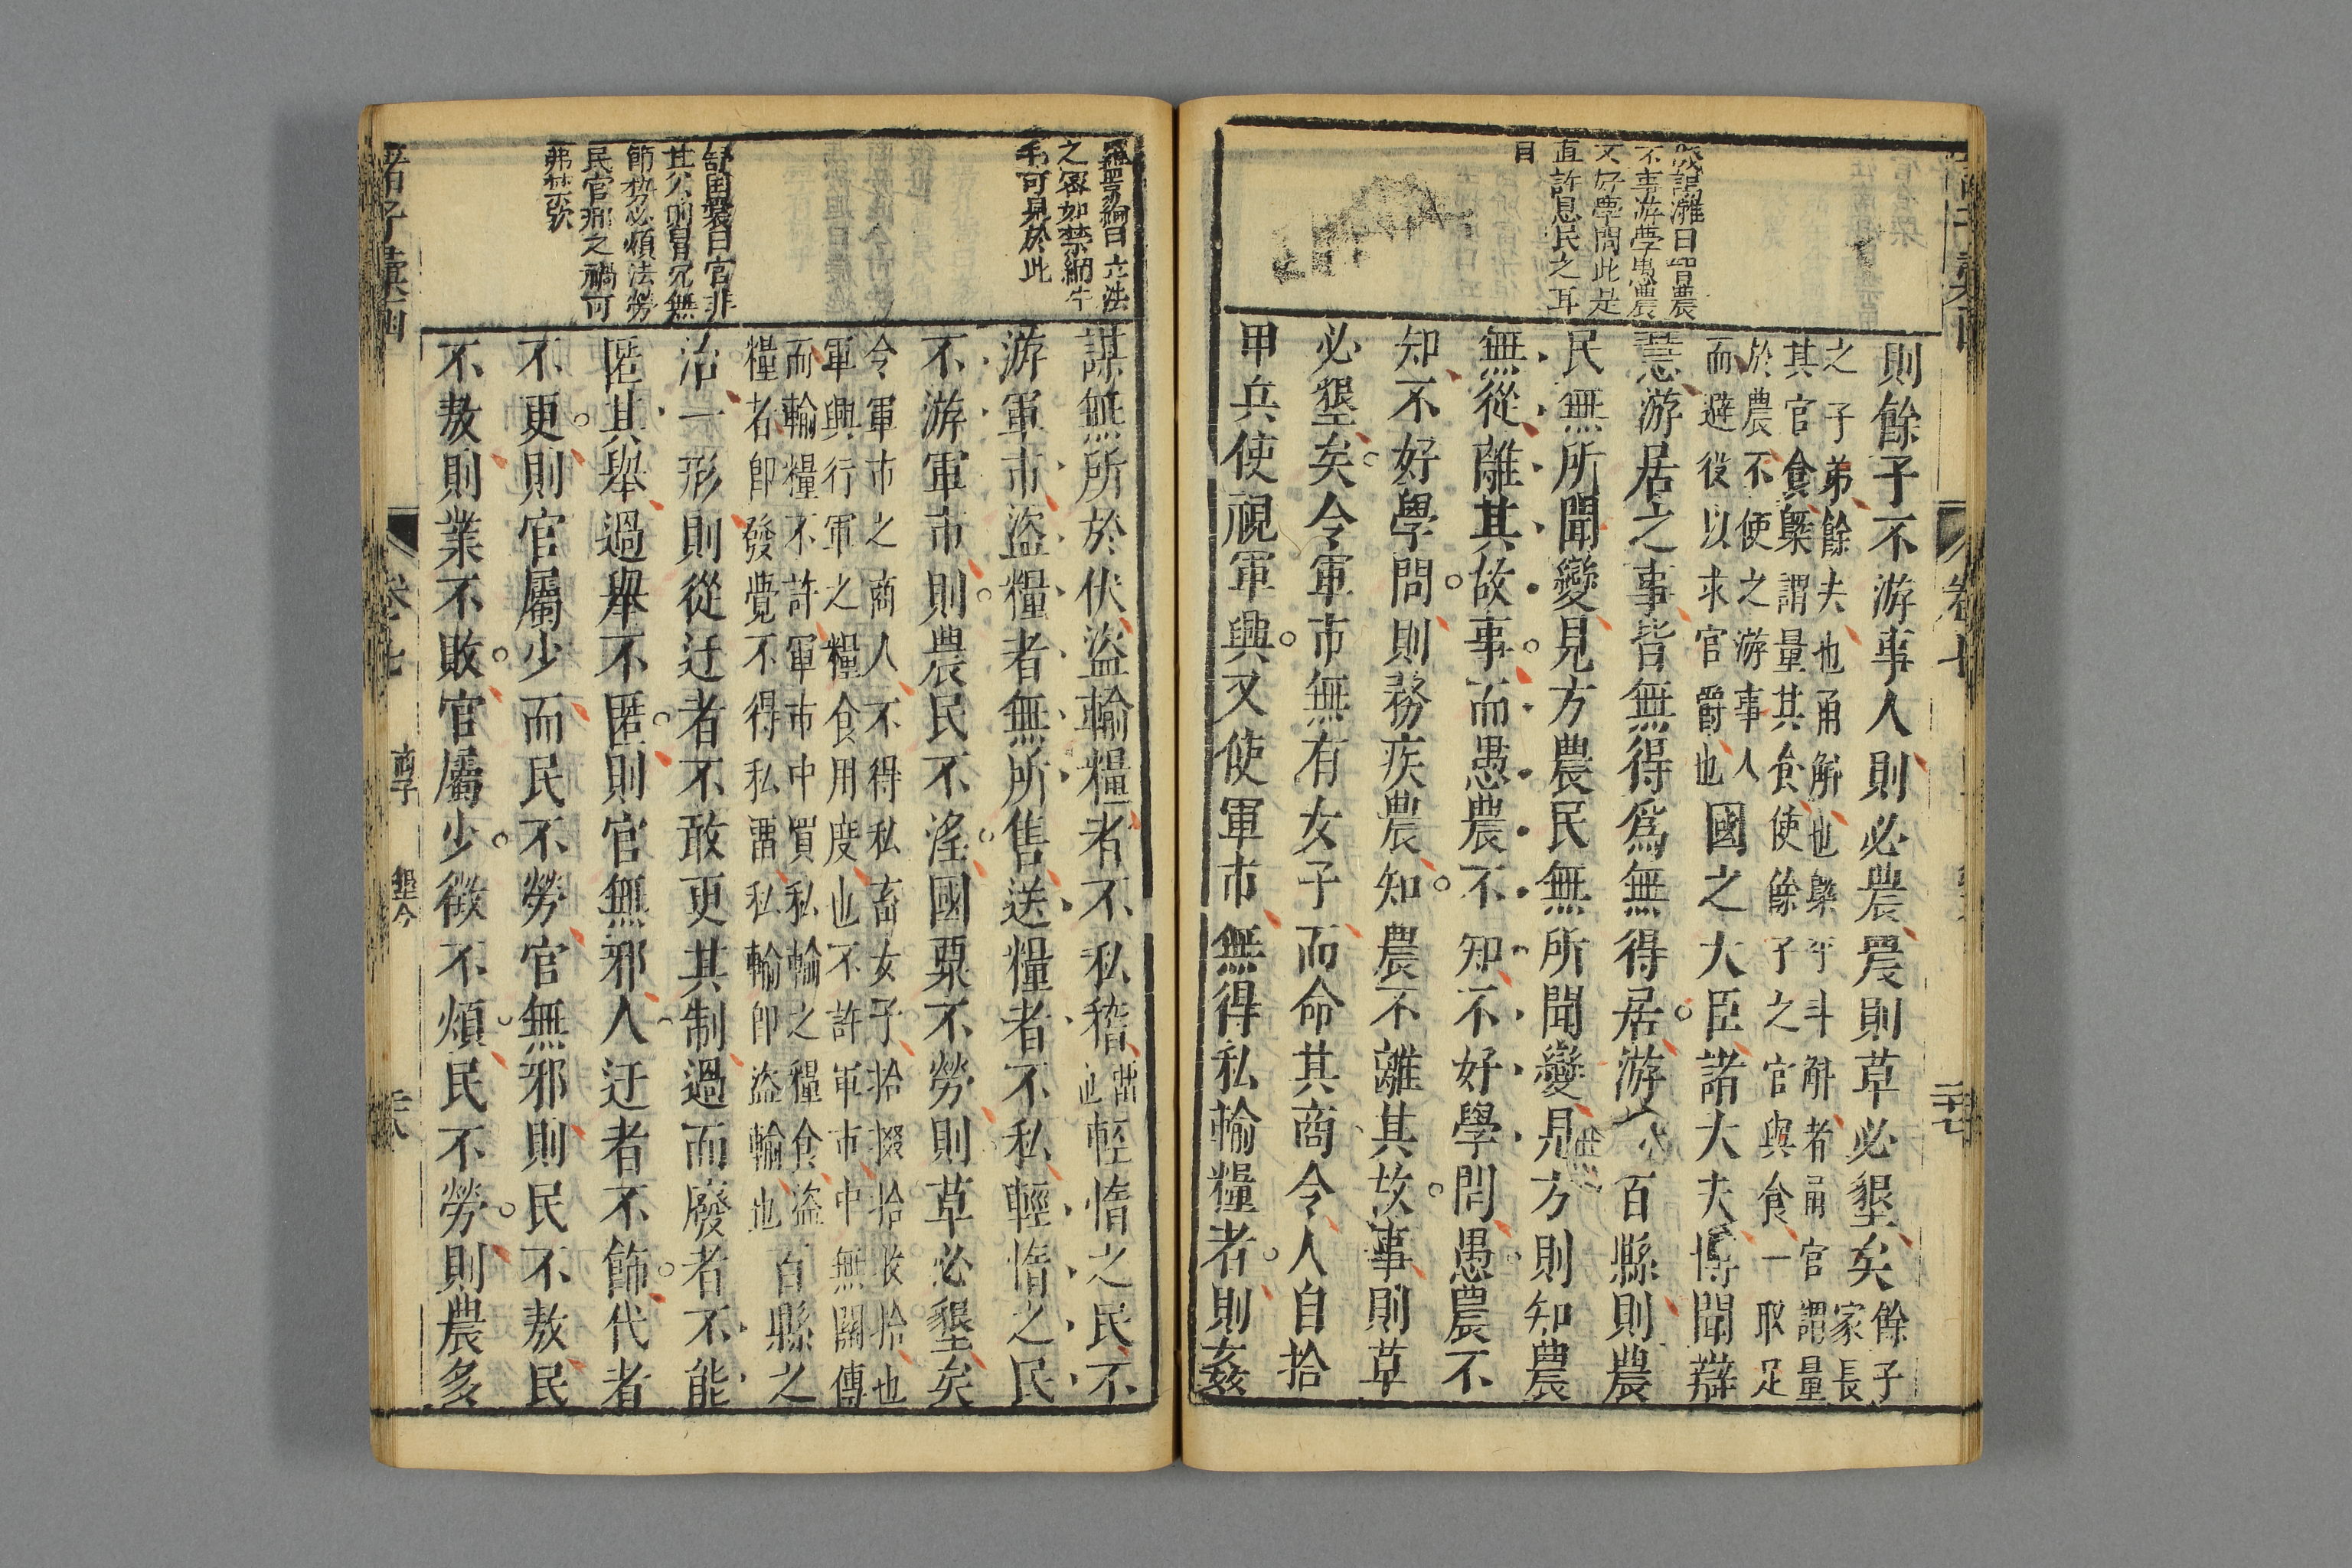 不事游學愚農
又好學問此是
直許息民之耳
目
則餘子不游事人則必農農則草必墾矣餘子
家長
之子弟餘夫也甬解也槩平斗斛者甬官謂量
其官食槩謂量其食使餘子之官與食一取足
於農不使之游事人
而避役以求官爵也
國之大臣諸大夫博聞辯
慧游居之事皆無得爲無得居游 百縣則農
民無所聞變見方農民無所聞變見方則知農
無從離其故事而愚農不知不好學問愚農不
知不好學問則務疾農知農不離其故事則草
必墾矣令軍市無有女子而命其商令人自拾
甲兵使視軍興又使軍市無得私輸糧者則姦
卷七
之密如禁網牛
毛可見於此
謀無所於伏盜輸糧者不私稽 輕惰之民不
游軍市盜糧者無所售送糧者不私輕惰之民
不游軍市則農民不淫國粟不勞則草必墾矣
令軍市之商人不得私畜女子拾掇拾收拾也
軍興行軍之糧食用度也不許軍市中無關傳
而輸糧不許軍市中買私輸之糧食盜
糧者即發覺不得私畱私輸即盜輸也
百縣之
治一形則從迂者不敢更其制過而廢者不能
匿其舉過舉不匿則官無邪人迂者不飾代者
不更則官屬少而民不勞官無邪則民不敖民
不敖則業不敗官屬少徵不煩民不勞則農多
日官非
其人則冒冗無
節勢必煩法勞
民官邪之禍可
弗禁歟
諸子彙函
卷七
商子
墾令